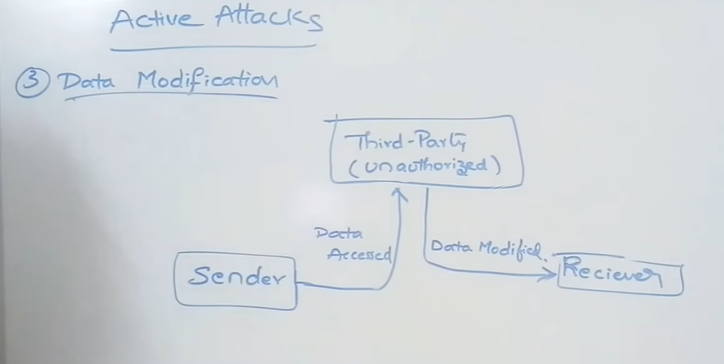 Active Attacks
③ Data Modification
Third-Party
(unauthorized)
Data
Accessed
Data Modified.
Sender
Reciever